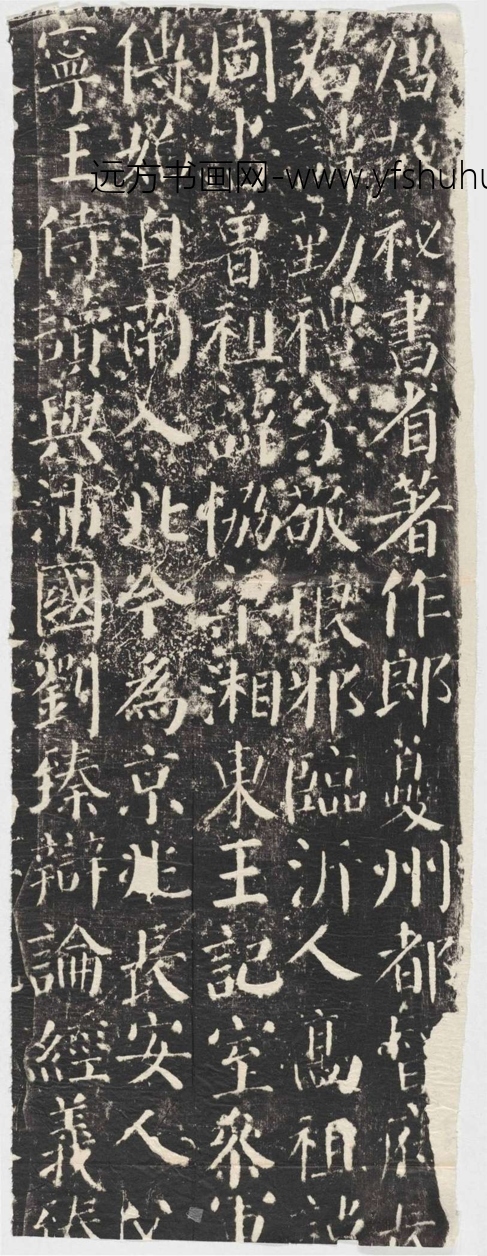 唐故秘書省著作郎夔州都督府長
君諱勤禮字敬琅邪臨沂人高祖諱
曾祖諱協梁湘東王記室參軍
傳始自南入北今為京兆長安人父
寧王侍讀與沛國劉臻辯論經義臻
远方书画网-www.yfshuhu